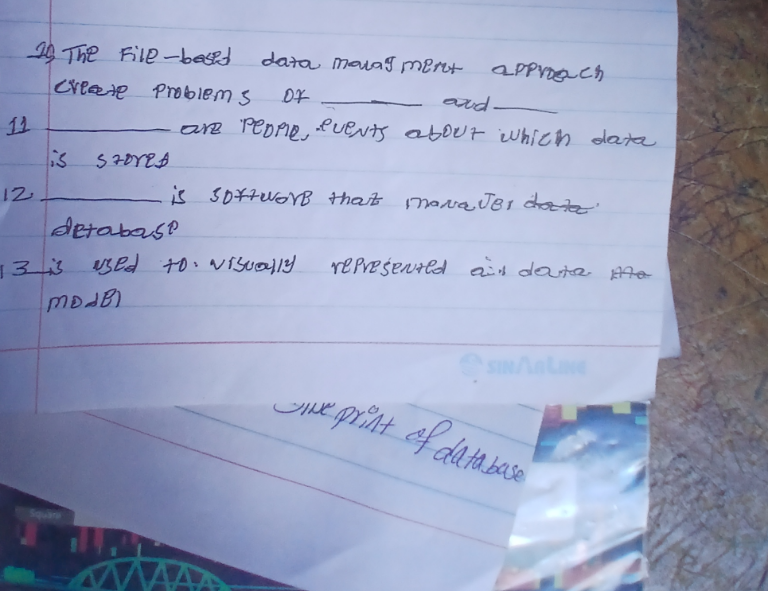 10 The File-based data managment approach
create problems of ______ and ______
11 ______ are people, events about which data
is stored
12 ______ is software that manages data
database
13 is used to visually represented a data the
model
SINARLINE
print of database
Square